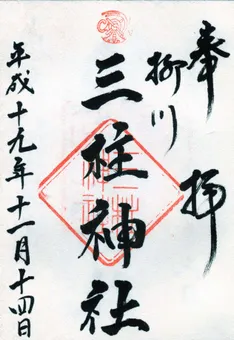 奉拝
柳川
三柱神社
平成十九年十一月十四日